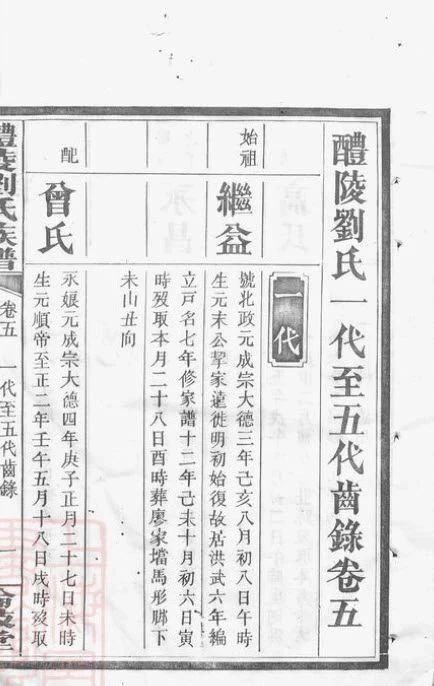 醴陵劉氏一代至五代齒錄卷五
一代
始祖
繼益
號北政元成宗大德三年己亥八月初八日午時
生元末公挈家遠徙明初始復故居洪武六年編
立戸名七年修家譜十二年己未十月初六日寅
時歿取本月二十八日酉時葬廖家壋馬形腳下
未山丑向
配
曾氏
永娘元成宗大德四年庚子正月二十七日未時
生元順帝至正二年壬午五月十八日戌時歿取
醴陵劉氏族譜
卷五
一代至五代齒錄
一